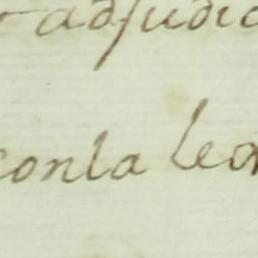 adjudic
conla leo